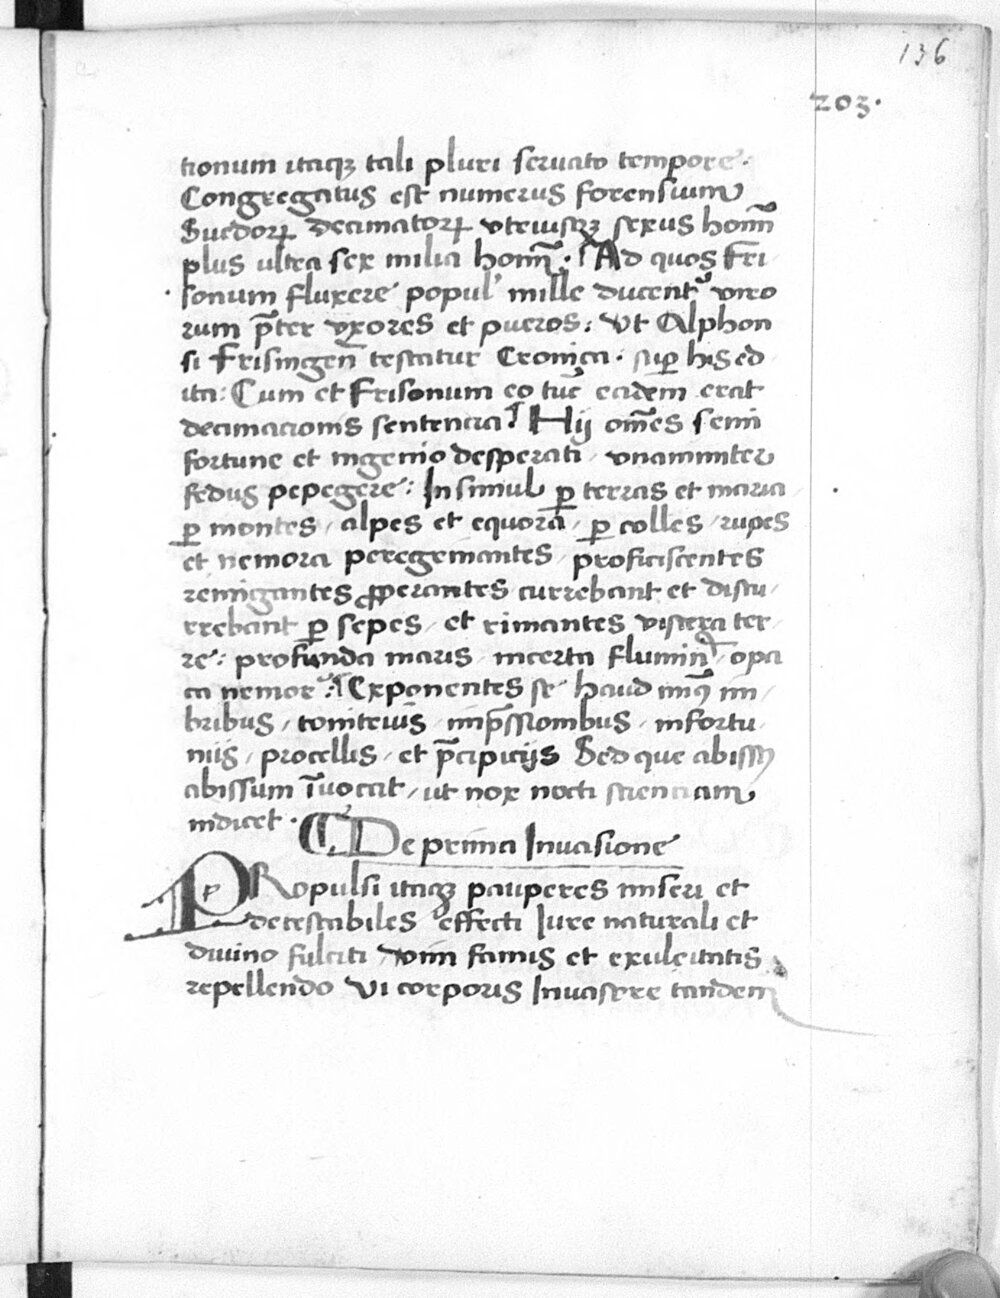 136
203.
tionum itaqꝫ tali pluri servato tempore.
Congregatus est numerus forensium
Suedoꝝ decimatoꝝ vtriusqꝫ sexus hom̄
plus ultra sex milia hom̄. Ad quos Fri
sonum fluxere popul' mille ducent' viro
rum p̄ter vxores et pueros: Vt Alphon
si Frisingen̄ testatur Cronica. sup̱ his ed
ita: Cum et Frisonum eo tūc eadem erat
decimacionis sentencia. Hij om̄es semi
fortune et ingenio desperati / vnanimiter
fedus pepegere: Insimul ꝑ terras et maria
ꝑ montes / alpes et equora / ꝑ colles / rupes
et nemora peregrinantes / proficiscentes
remigantes ꝓperantes currebant et discu/
rrebant ꝑ sepes / et rimantes viscera ter/
re: profunda maris / incerta flumin' / opa
ca nemor': Exponentes se haud imꝰ im/
bribus / tonitruis / imp̄ssionibus / infortu/
niis / procellis / et p̄cipicijs Sed que abissꝰ
abissum īuocat / ut nox nocti scienciam
indicet.
De prima Invasione
PRopulsi itaqꝫ pauperes miseri et
detestabiles effecti Iure naturali et
diuino fulciti / vim famis et exuleitatis
repellendo Vi corporis Invasere tandem